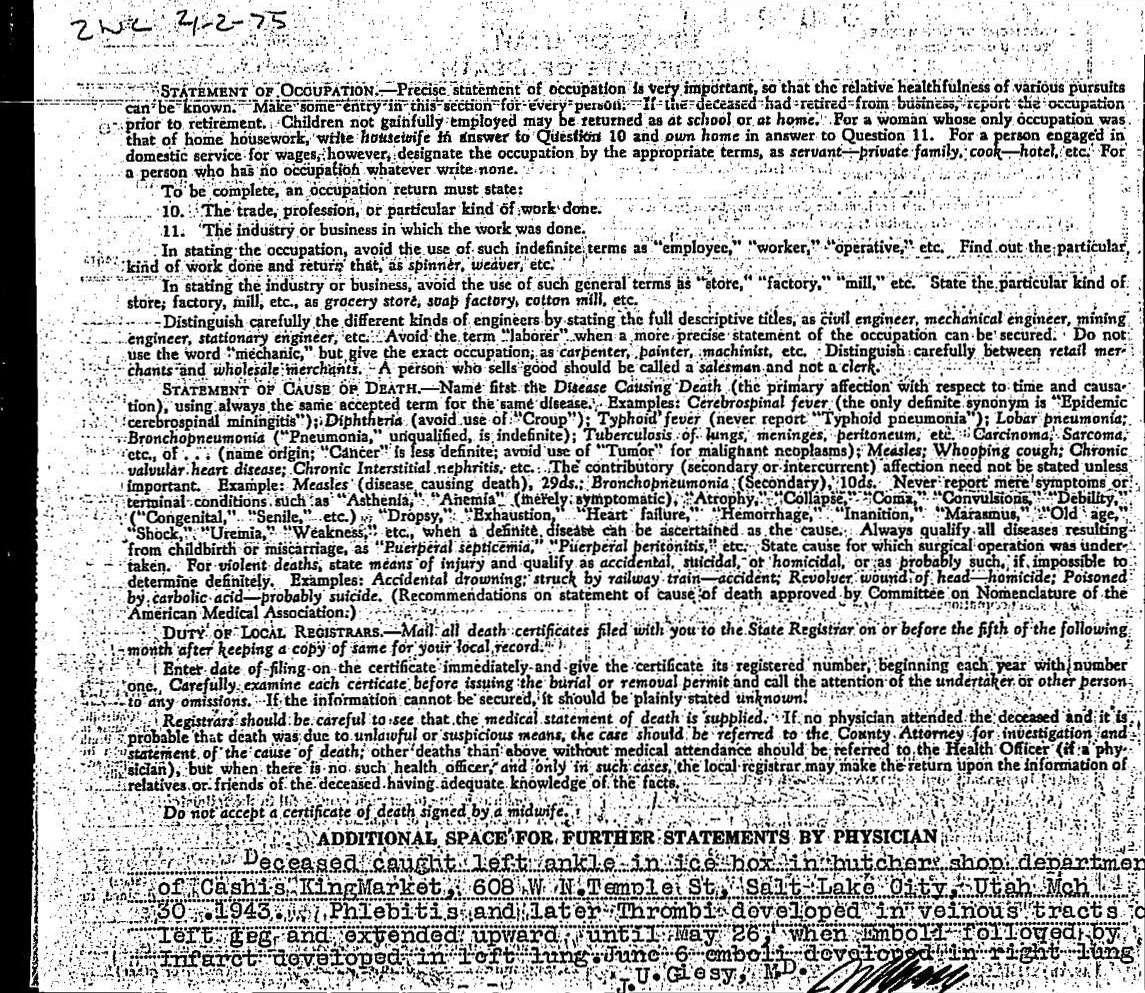 2-2-75
STATEMENT OF OCCUPATION.—Precise statement of occupation is very important, so that the relative healthfulness of various pursuits
can be known. Make some entry in this section for every person. If the deceased had retired from business, report the occupation
prior to retirement. Children not gainfully employed may be returned as at school or at home. For a woman whose only occupation was
that of home housework, write housewife in answer to Question 10 and own home in answer to Question 11. For a person engaged in
domestic service for wages, however, designate the occupation by the appropriate terms, as servant—private family, cook—hotel, etc. For
a person who has no occupation whatever write none.
To be complete, an occupation return must state:
10. The trade, profession, or particular kind of work done.
11. The industry or business in which the work was done.
In stating the occupation, avoid the use of such indefinite terms as "employee," "worker," "operative," etc. Find out the particular
kind of work done and return that, as spinner, weaver, etc.
In stating the industry or business, avoid the use of such general terms as "store," "factory," "mill," etc. State the particular kind of
store, factory, mill, etc., as grocery store, soap factory, cotton mill, etc.
Distinguish carefully the different kinds of engineers by stating the full descriptive titles, as civil engineer, mechanical engineer, mining
engineer, stationary engineer, etc. Avoid the term "laborer" when a more precise statement of the occupation can be secured. Do not
use the word "mechanic," but give the exact occupation, as carpenter, painter, machinist, etc. Distinguish carefully between retail mer-
chants and wholesale merchants. A person who sells good should be called a salesman and not a clerk.
STATEMENT OF CAUSE OF DEATH.—Name first the Disease Causing Death (the primary affection with respect to time and causa-
tion), using always the same accepted term for the same disease. Examples: Cerebrospinal fever (the only definite synonym is "Epidemic
cerebrospinal miningitis"); Diphtheria (avoid use of "Croup"); Typhoid fever (never report "Typhoid pneumonia"); Lobar pneumonia;
Bronchopneumonia ("Pneumonia," unqualified, is indefinite); Tuberculosis of lungs, meninges, peritoneum, etc. Carcinoma, Sarcoma,
etc., of . . . (name origin; "Cancer" is less definite; avoid use of "Tumor" for malignant neoplasms); Measles; Whooping cough; Chronic
valvular heart disease; Chronic Interstitial nephritis, etc. The contributory (secondary or intercurrent) affection need not be stated unless
important. Example: Measles (disease causing death), 29ds.; Bronchopneumonia (Secondary), 10ds. Never report mere symptoms or
terminal conditions such as "Asthenia," "Anemia" (merely symptomatic), "Atrophy," "Collapse," "Coma," "Convulsions," "Debility,"
("Congenital," "Senile," etc.) "Dropsy," "Exhaustion," "Heart failure," "Hemorrhage," "Inanition," "Marasmus," "Old age,"
"Shock," "Uremia," "Weakness," etc., when a definite disease can be ascertained as the cause. Always qualify all diseases resulting
from childbirth or miscarriage, as "Puerperal septicemia," "Puerperal peritonitis," etc. State cause for which surgical operation was under-
taken. For violent deaths, state means of injury and qualify as accidental, suicidal, or homicidal, or as probably such, if impossible to
determine definitely. Examples: Accidental drowning; struck by railway train—accident; Revolver wound of head—homicide; Poisoned
by carbolic acid—probably suicide. (Recommendations on statement of cause of death approved by Committee on Nomenclature of the
American Medical Association.)
DUTY OF LOCAL REGISTRARS.—Mail all death certificates filed with you to the State Registrar on or before the fifth of the following
month after keeping a copy of same for your local record.
Enter date of filing on the certificate immediately and give the certificate its registered number, beginning each year with number
one. Carefully examine each certicate before issuing the burial or removal permit and call the attention of the undertaker or other person
to any omissions. If the information cannot be secured, it should be plainly stated unknown!
Registrars should be careful to see that the medical statement of death is supplied. If no physician attended the deceased and it is
probable that death was due to unlawful or suspicious means, the case should be referred to the County Attorney for investigation and
statement of the cause of death; other deaths than above without medical attendance should be referred to the Health Officer (if a phy-
sician), but when there is no such health officer, and only in such cases, the local registrar may make the return upon the information of
relatives or friends of the deceased having adequate knowledge of the facts.
Do not accept a certificate of death signed by a midwife.
ADDITIONAL SPACE FOR FURTHER STATEMENTS BY PHYSICIAN
Deceased caught left ankle in ice box in butcher shop departmen
of Cashis KingMarket, 608 W N.Temple St, Salt Lake City, Utah Mch
30 .1943. Phlebitis and later Thrombi developed in veinous tracts o
left geg and extended upward, until May 26, when Emboli followed by
infarct developed in left lung.June 6 emboli developed in right lung
J.U.Giesy, M.D.